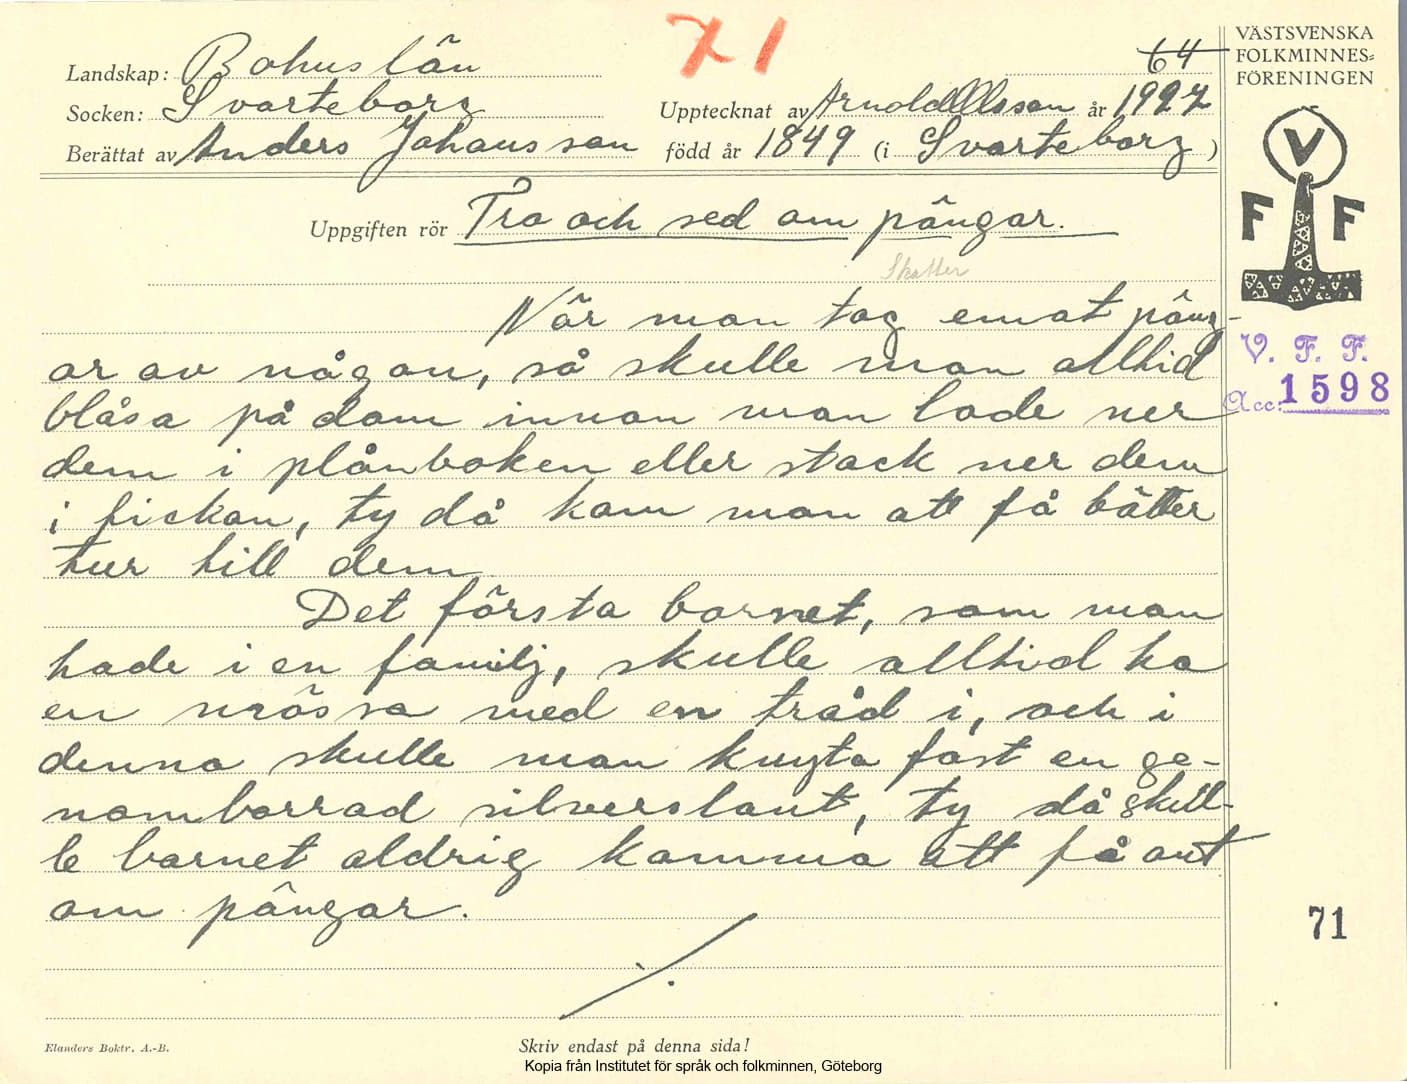 71
64
VÄSTSVENSKA
FOLKMINNES=
FÖRENINGEN
Landskap: Bohuslän
Socken: Svarteborg Upptecknat av Arnold Olsson år 1927
Berättat av Anders Johansson född år 1849 (i Svarteborg)
V
F F
Uppgiften rör Tro och sed om pängar.
Skatter
När man tog emot päng-
ar av någon, så skulle man alltid
blåsa på dom innan man lade ner
dem i plånboken eller stack ner dem
i fickan, ty då kom man att få bätter
tur till dem
Det första barnet, som man
hade i en familj, skulle alltid ha
en mössa med en tråd i, och i
denna skulle man knyta fast en ge-
nomborrad silverslant, ty då skul-
le barnet aldrig komma att få ont
om pängar.
V. F. F.
Acc: 1598
71
Elanders Boktr. A.-B.
Skriv endast på denna sida!
Kopia från Institutet för språk och folkminnen, Göteborg